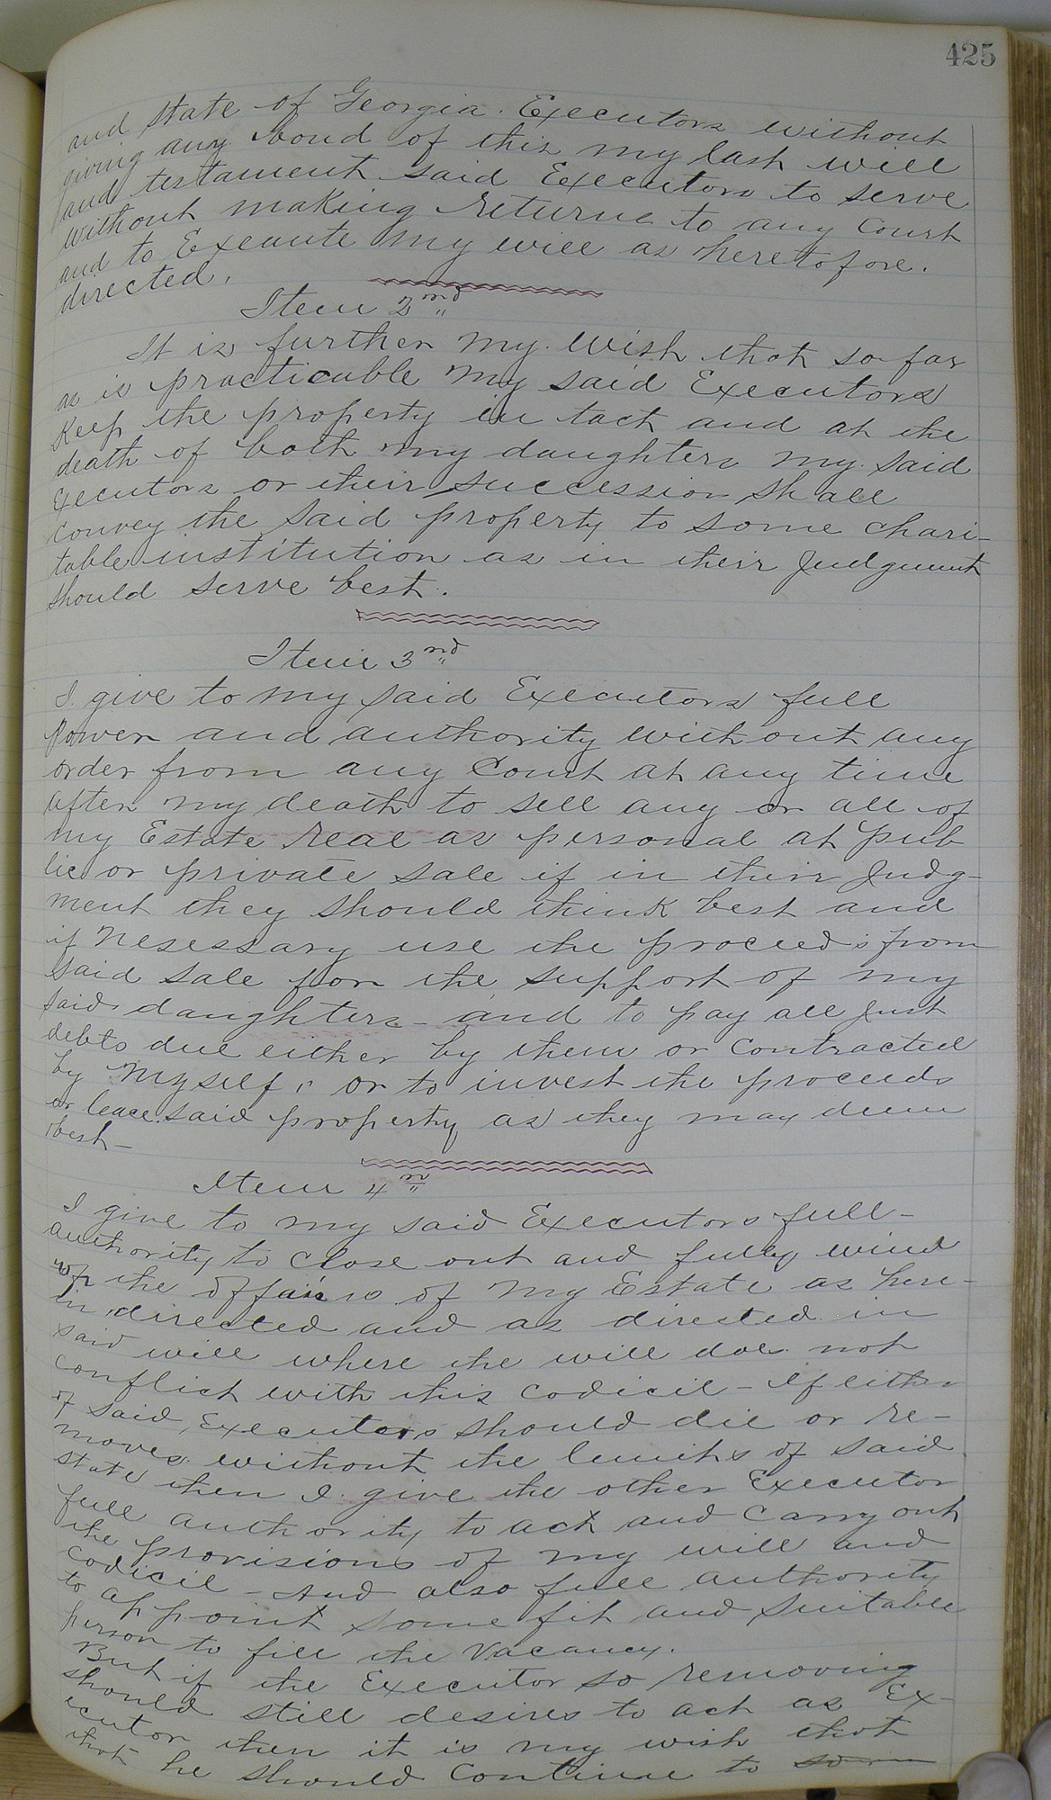 425
and State of Georgia. Executors without
giving any bond of this my last will
and testament said Executors to serve
without making returns to any Court
and to Execute my will as heretofore.
directed.
Item 2nd
It is further my wish that so far
as is practicable my said Executors
Keep the property in tact and at the
death of both my daughters my said
Executors or their succession shall
convey the said property to some chari-
table institution as in their Judgment
should serve best.
Item 3rd
I give to my said Executors full
Power and authority without any
order from any Court at any time
after my death to sell any or all of
my Estate real as personal at pub
lic or private sale if in their Judg-
ment they should think best and
if nesessary use the proceeds from
said sale for the support of my
said daughters - and to pay all Just
debts due either by them or contracted
by myself, or to invest the proceeds
or leace said property as they may deem
best -
Item 4th
I give to my said Executors full -
authority to close out and fully wind
up the affairs of my Estate as here-
in directed and as directed in
said will where the will does not
conflict with this codicil - If either
of said Executors should die or re-
moves without the limits of said
State then I give the other Executor
full authority to act and carry out
the provisions of my will and
codicil - And also full authority
to appoint some fit and suitable
person to fill the vacancy.
But if the Executor so removing
should still desires to act as Ex-
ecutor then it is my wish that
that he should continue to so